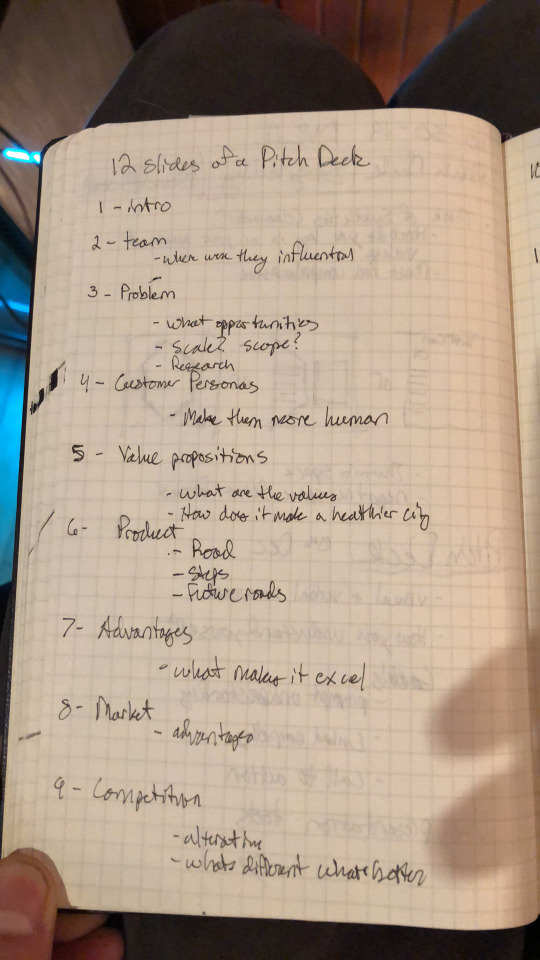 12 slides of a Pitch Deck
1 - intro
2 - team
- where were they influential
3 - Problem
- what opportunities
- Scale? scope?
- Research
4 - Customer Personas
- Make them more human
5 - Value propositions
- what are the values
- How does it make a healthier city
6 - Product
- Road
- Steps
- Future roads
7 - Advantages
- what makes it excel
8 - Market
- advantages
9 - Competition
- alterative
- whats different whats better
10
1